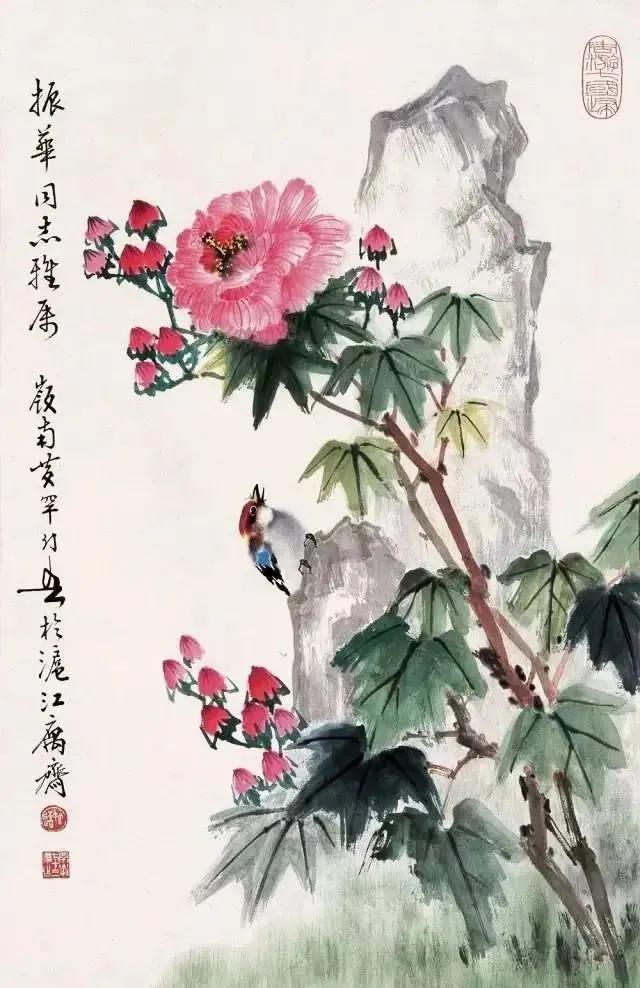 振華同志雅屬　嶺南黄罕行画於滬江寓齋